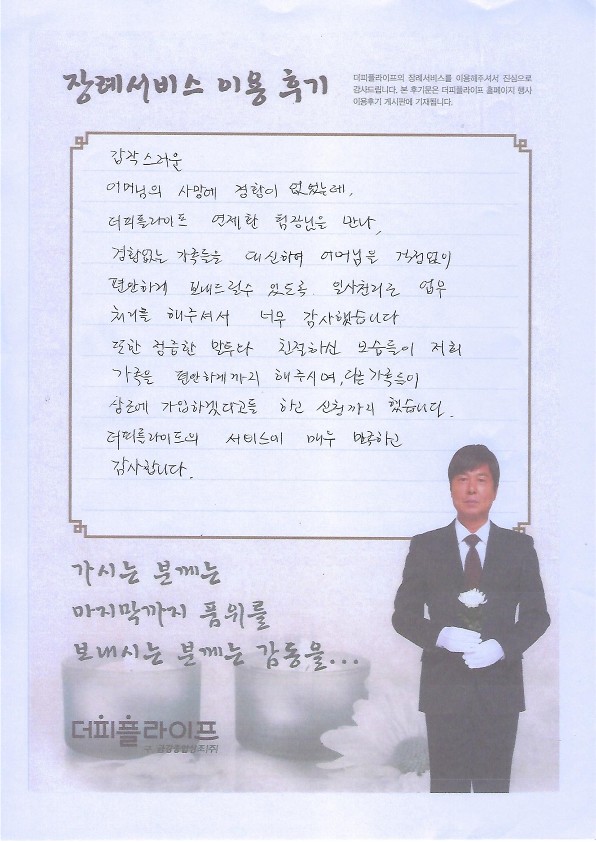 장례서비스 이용 후기
더피플라이프의 장례서비스를 이용해주셔서 진심으로
감사드립니다. 본 후기문은 더피플라이프 홈페이지 행사
이용후기 게시판에 기재됩니다.
갑작스러운
어머님의 사망에 경황이 없었는데,
더피플라이프 연제한 팀장님을 만나,
경황없는 가족들을 대신하여 어머님을 걱정없이
편안하게 보내드릴수 있도록 일사천리로 업무
처리를 해주셔서 너무 감사했습니다
또한 정중한 말투나 친절하신 모습들이 저희
가족을 편안하게까지 해주시며, 다른가족들이
상조에 가입하겠다고들 하고 신청까지 했습니다.
더피플라이프의 서비스에 매우 만족하고
감사합니다.
가시는 분께는
마지막까지 품위를
보내시는 분께는 감동을...
더피플라이프
구. 금강종합상조(주)